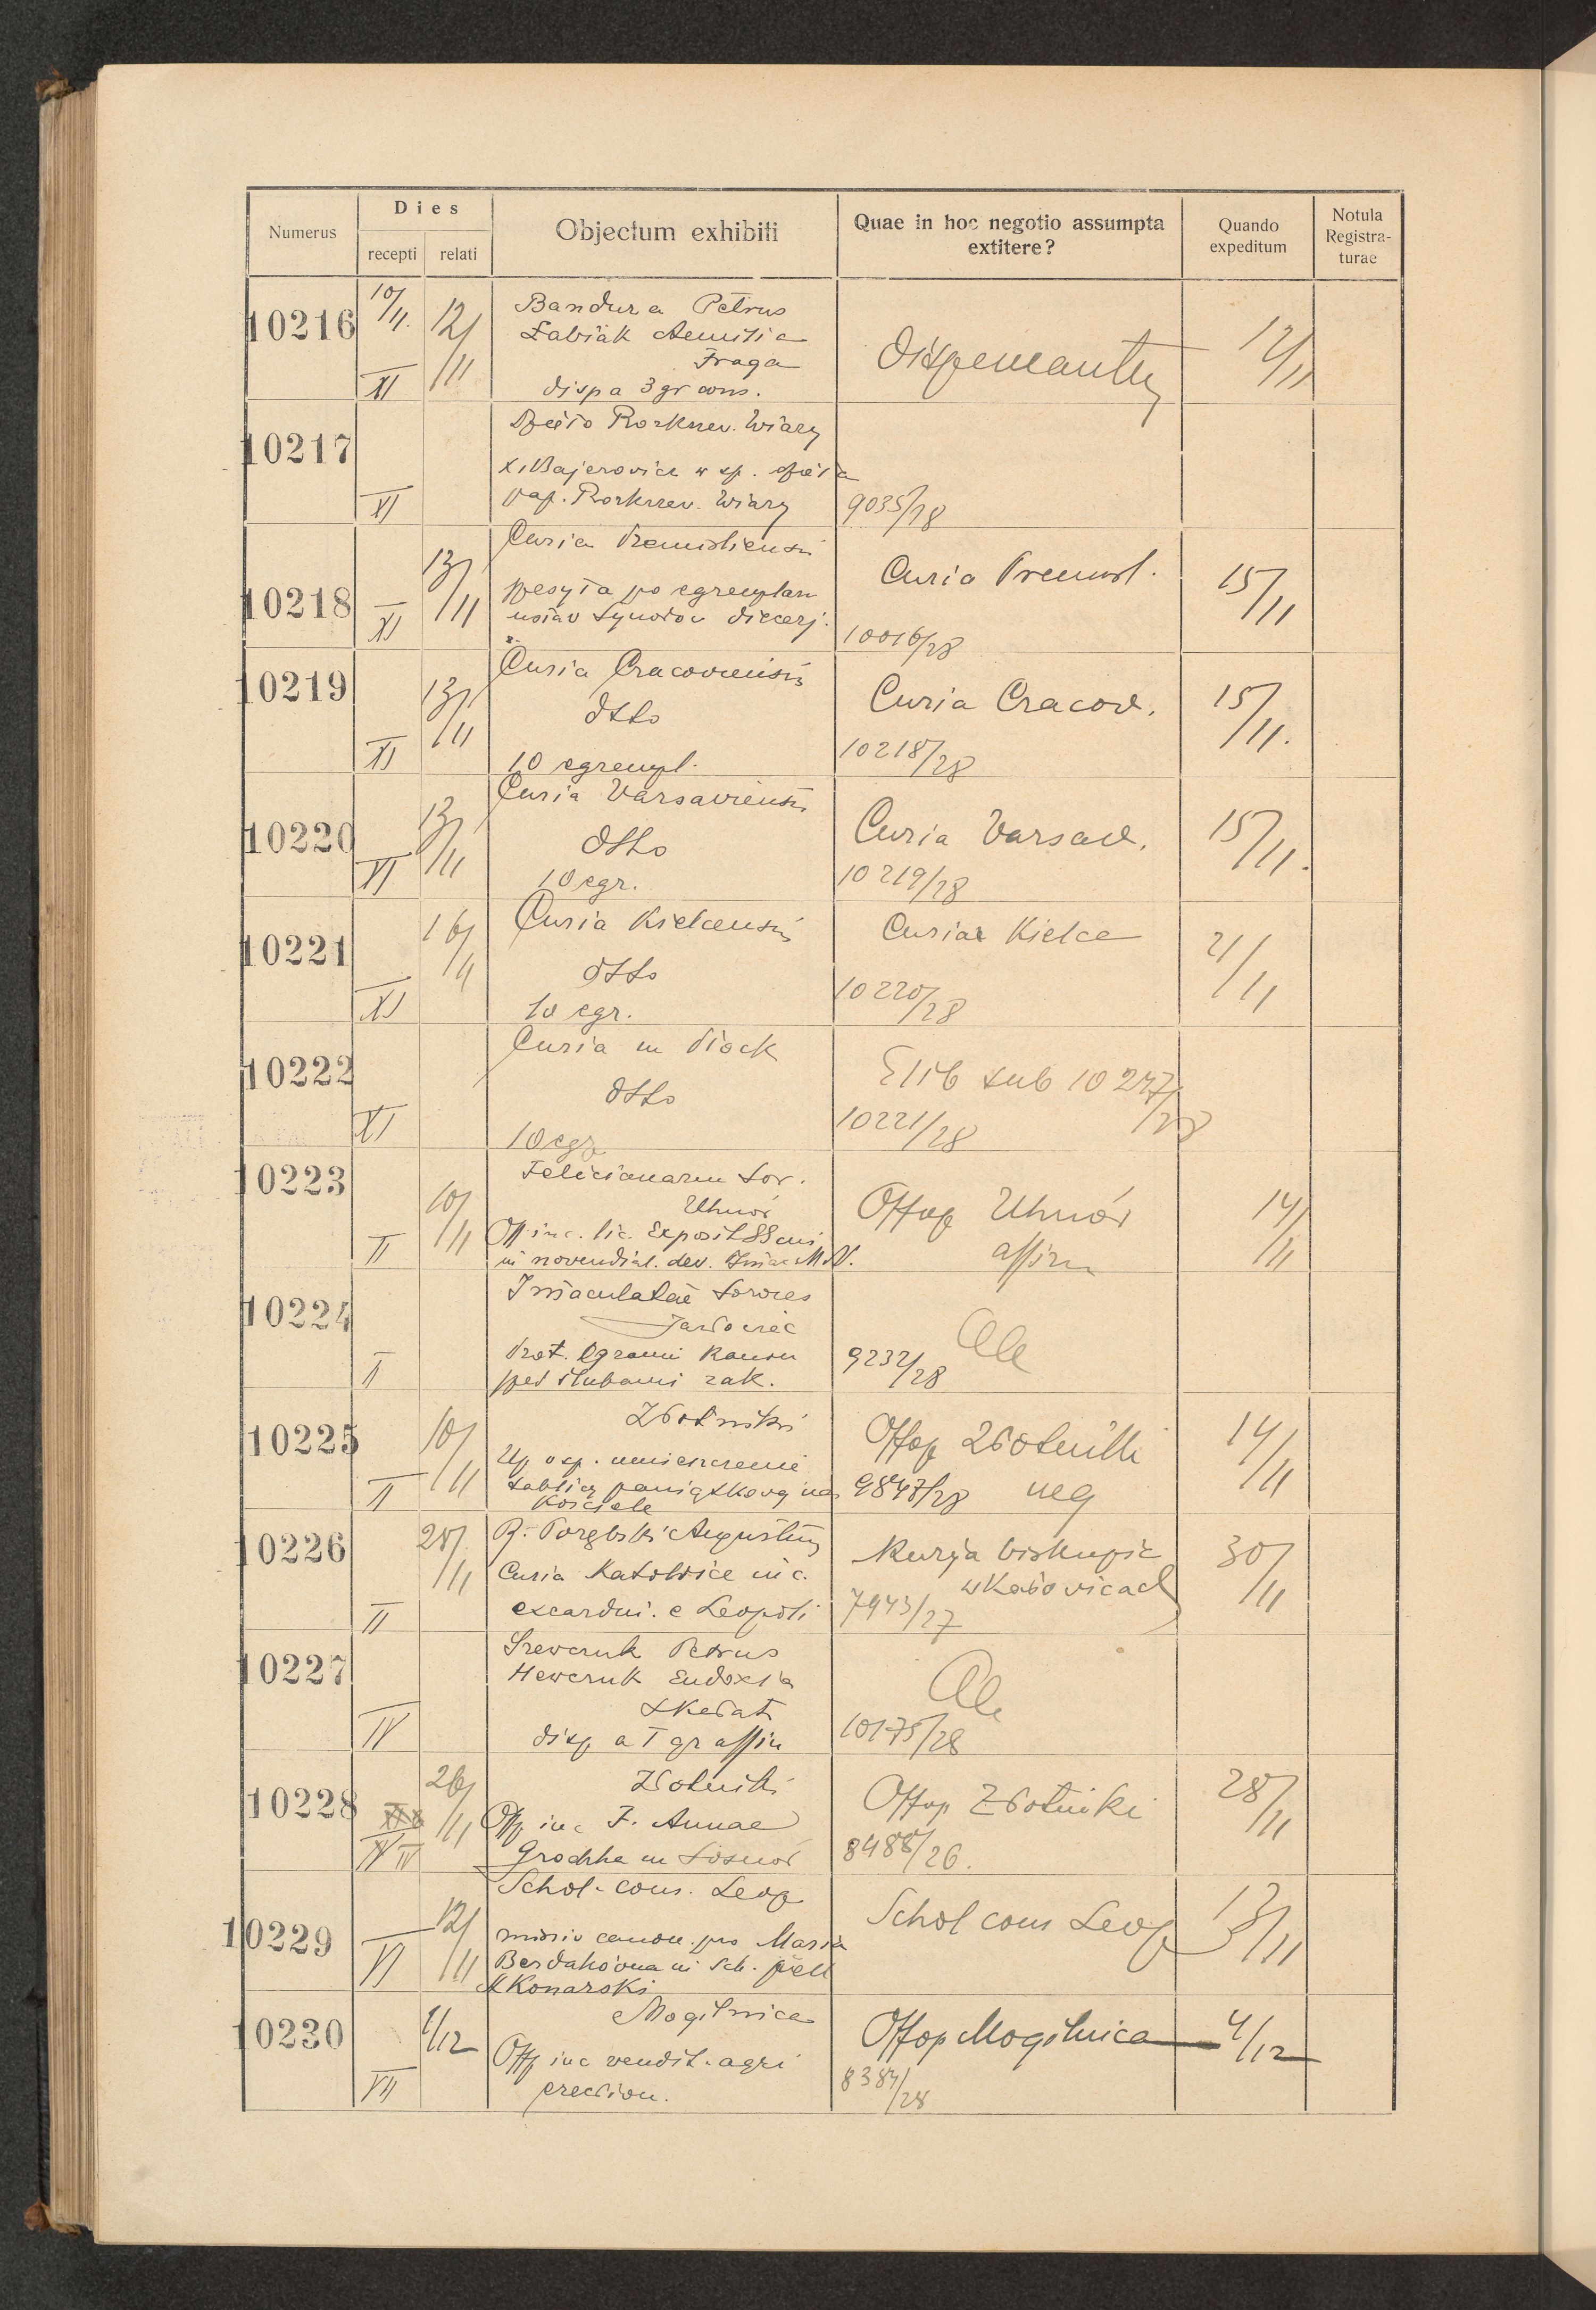 Numerus
Dies
recepti
relati
Objectum exhibiti
Quae in hoc negotio assumpta
extitere?
Quando
expeditum
Notula
Registra-
turae
10216
10/11.
XI
12/11
Bandura Petrus
Łabiak Aemilia
Fraga
disp a 3 gr cons.
dispensantur
12/11
10217
XI
Dzieło Rozkrzew. Wiary
X. Bajerowicz w sp. dzieła
pap. Rozkrzew. Wiary
9035/28
10218
XI
13/11
Curia Premisliensis
przesyła po egzemplarz
ustaw Synodow diecezj.
Curia Premisl.
10016/28
15/11
10219
XI
13/11
Curia Cracoviensis
dtto
10 egzempl.
Curia Cracov.
10218/28
15/11.
10220
XI
13/11
Curia Varsaviensis
dtto
10 egz.
Curia Varsav.
10219/28
15/11.
10221
XI
16/11
Curia Kielcensis
dtto
10 egz.
Curiae Kielce
10220/28
21/11
10222
XI
Curia in Płock
dtto
10 egz
sub 10247/28
10221/28
10223
II
10/11
Felicianarum Sor.
Uhnów
Off. inc. lic. Exposit SSmi
in novendial. dev. Imac M.V.
Offop Uhnów
affirm
14/11
10224
II
Imaculatae Sorores
Jazłowiec
Prot. Egzami kanon
przed ślubami zak.
9232/28
Ale
10225
II
10/11
Złotniki
Up o sp. umieszczenie
tablicy pamiątkowej na
Kościele
Offop Złotniki
9847/28 neg
14/11
10226
II
28/11
R. Porębski Augustyn
Curia Katowice inc.
excardin. e Leopoli
Kurja biskupia
w Katowicach
7943/27
30/11
10227
IV
Szewczuk Petrus
Hewczuk Eudoxia
Skałat
disp a I gr affin
Ale
10175/28
10228
IV
26/11
Złotniki
Off inc F. Annae
Grochha in Sosnów
Offop Złotniki
8488/26.
28/11
10229
VI
12/11
Schol. cons. Leop
missio canon. pro Maria
Berdahówna in Sch. przell
St Konarski
Schol cons Leop
13/11
10230
VII
1/12
Mogilnica
Off inc vendit. agri
erection.
Offop Mogilnica
8384/28
4/12